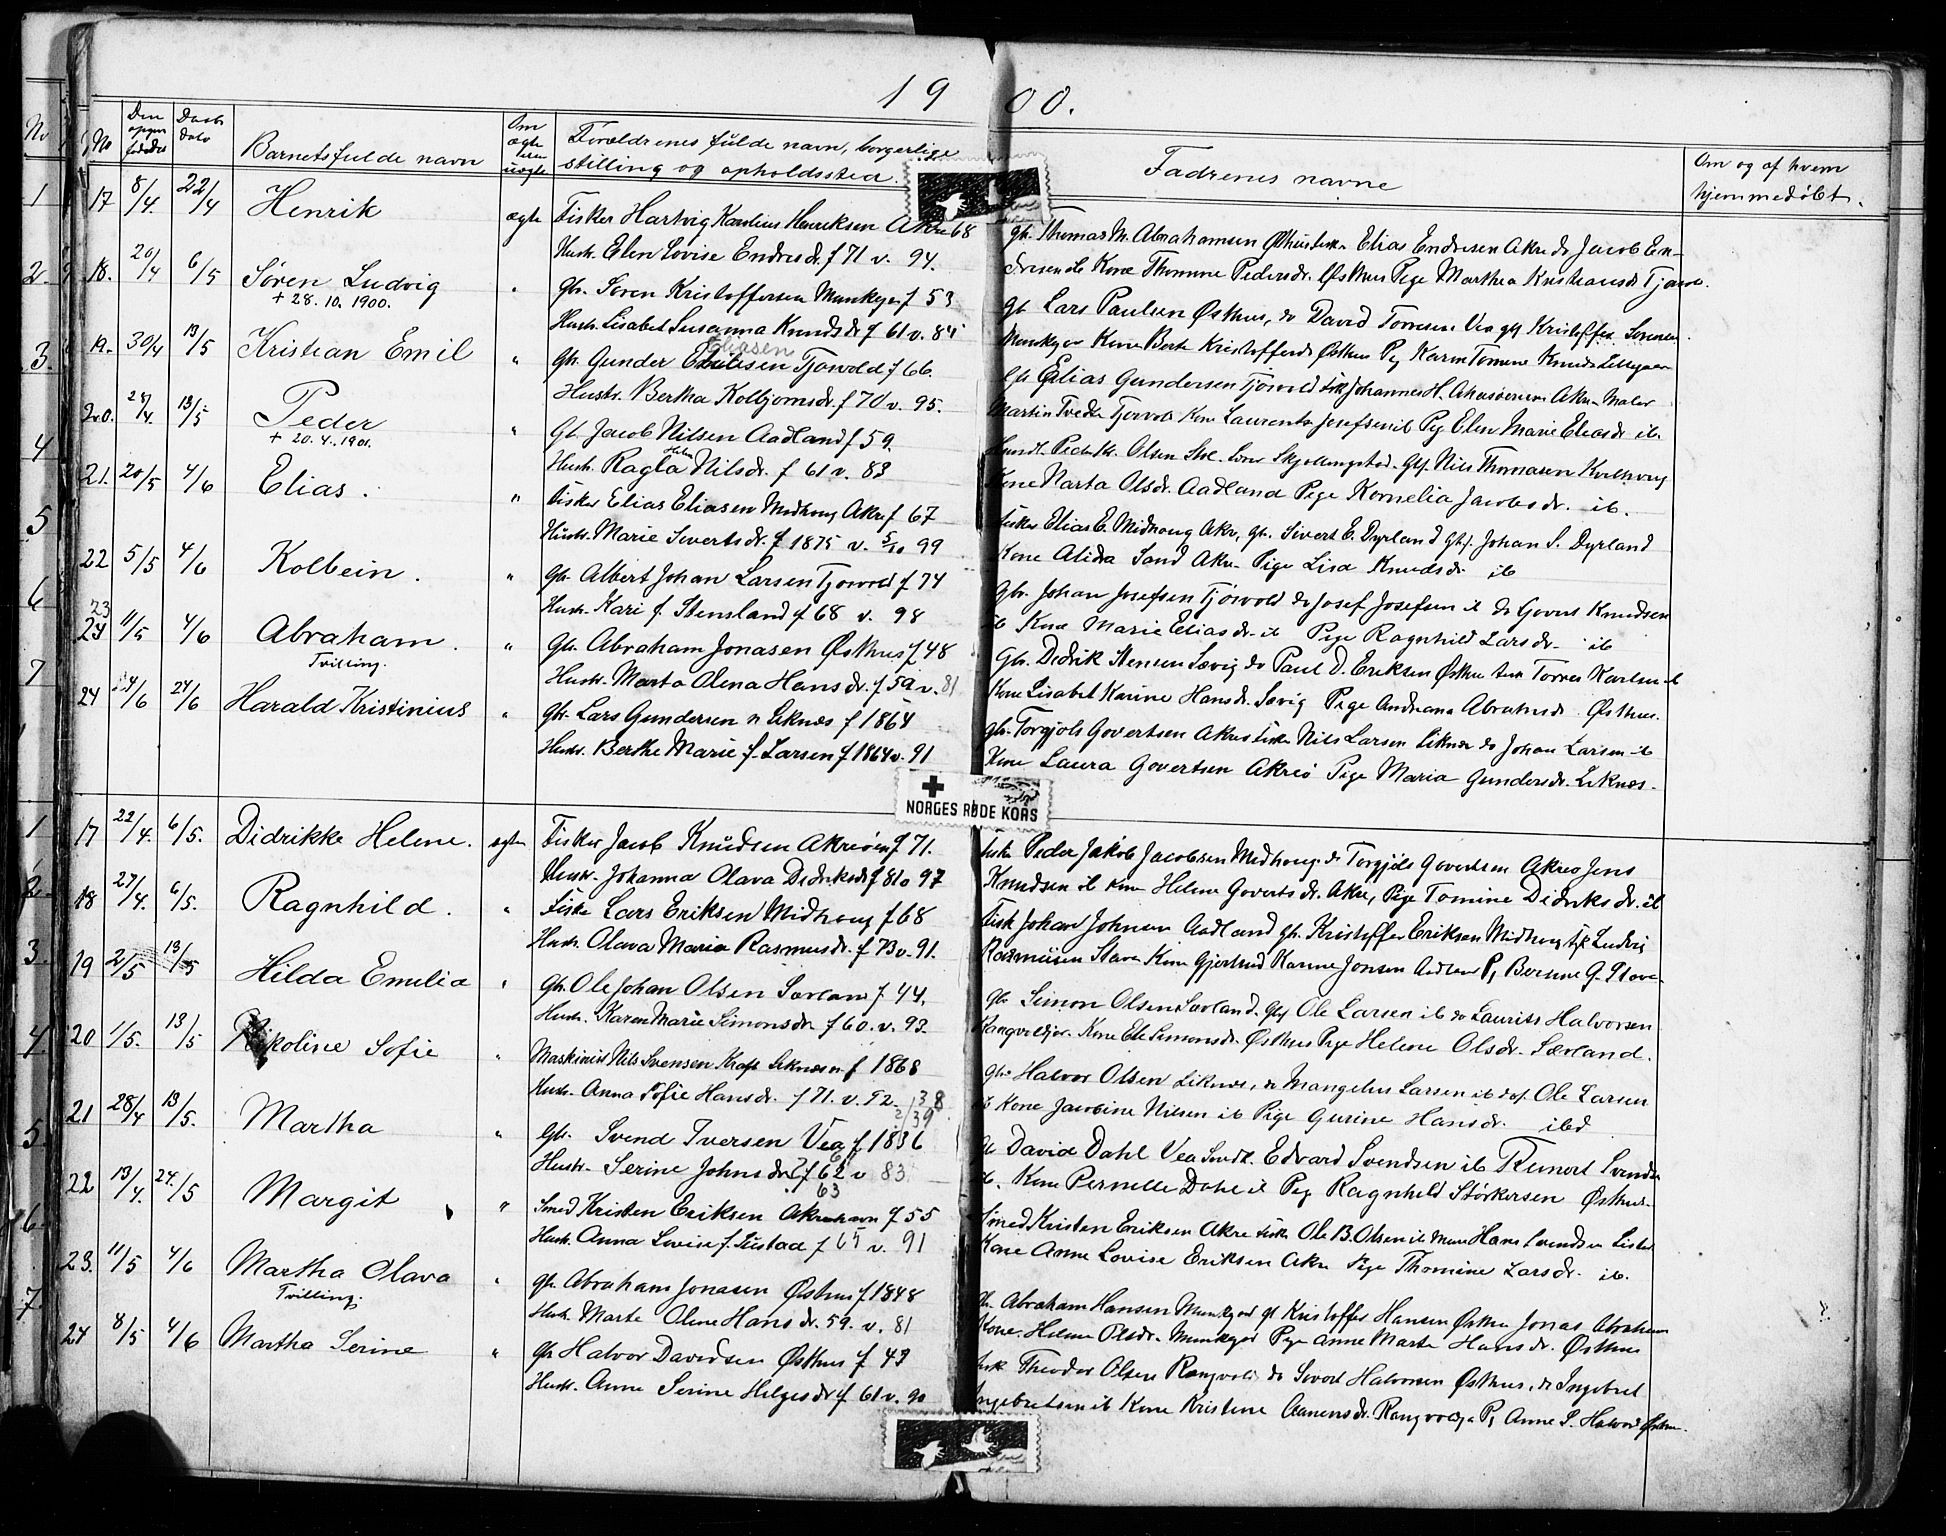 19 00.
No Den opgiv fødsels Daabs dato Barnets fulde navn Om ægte eller uægte Forældrenes fulde navn, borgerlige stilling og opholdssted. Fadrenes navne Om og af hvem hjemmedøbt.
17 8/4. 22/4 Henrik ægte Fisker Hartvig Karelius Henriksen Akre 68
Hustr. Elen Lovise Endresdr. f 71 v. 94.
Gbr. Thomas M. Abrahamsen Østhus Fisker Elias Endresen Akre do Jacob En-
dresen ib Kone Thomine Pedersdr. Østhus Pige Martha Kristiansdr Tjøsv.
18. 20/4 6/5 Søren Ludvig " Gbr. Søren Kristoffersen Munkejor f 53
+ 28.10.1900.
Hustr. Lisabet Susanna Knudsdr f 61 v. 85
Gbr Lars Paulsen Østhus, do David Tornesen Vea gbf Kristoffer Sørensen
Munkejor Kone Berte Kristoffersd Østhus Pg Karen Tomine Knudsd
19. 30/4 13/5 Kristian Emil " Gbr. Gunder Eliasen Tjøsvold f 66.
Eliasen
Hustr. Bertha Kolbjørnsdr. f 70 v. 95.
Gbr Elias Gundersen Tjøsvold Fisk Johannes H. Akre Maler
Martin Tvedte Tjosvold Kone Laurentse Josefsen ib Pg Elen Marie Eliasdr ib.
20. 28/4 13/5 Peder " Gb. Jacob Nilsen Aadland f 59.
+ 20.4.1901.
Hustr. Ragla Nilsdr. f 61 v. 83
Peder Kr. Olsen Skjollingstad. Gbf. Nils Thomasen Kvilhoug
Kone Marta Olsdr. Aadland Pige Kornelia Jacobsdr. ib.
21. 20/5 4/6 Elias. " Fisker Elias Eliasen Midhoug Akre f 67
Hustr. Marie Sivertsdr. f 1875 v. 5/10 99
Fisker Elias E. Midhoug Akre, Gbr. Sivert E. Dyrland gbf. Johan S. Dyrland
Kone Alida Sand Akre Pige Lisa Knudsdr ib
22 5/5 4/6 Kolbein. " Gbr. Albert Johan Larsen Tjosvold f 74
Hustr. Kari f. Stensland f 68 v. 98
Gbr. Johan Josefsen Tjøsvold do Josef Josefsen ib do Govert Knudsen
ib Kone Marie Eliasdr. ib Pige Ragnhild Larsdr. ib
23 11/5 4/6 Abraham. " Gbr. Abraham Jonasen Østhus f 48
Tvilling.
Hustr. Marta Olena Hansdr. f 59 v. 81
Gbr. Didrik Stensen Sævig do Paul D. Eriksen Østhus Fisk Torres Karlsen ib
Kone Lisabet Karine Hansdr. Sævig Pige Andreana Abrahmsdr. Østhus.
24 24/6 Harald Kristinius " Gbr. Lars Gundersen n Liknæs f 1864
Hustr. Berthe Marie f. Larsen f 1864 v. 91
Gbr. Torgjøls Govertsen Akre Fisker Nils Larsen Liknæs do Johan Larsen ib
Kone Laura Govertsen Akreø Pige Maria Gundersdr. Liknæs.
NORGES RØDE KORS
17 22/4. 6/5. Didrikke Helene. ægte Fisker Jacob Knudsen Akreøen f 71.
Hustr. Johanna Olava Didriksdr f 81 v 97
Fisker Peder Jakob Jacobsen Midhoug do Torgjøls Govertsen Akreø Jens
Knudsen ib Kone Helene Govertsdr. Akre, Pige Tomine Didriksdr. ib
18 27/4. 6/5. Ragnhild. " Fisker Lars Eriksen Midhoug f 68
Hustr. Olava Maria Rasmusdr. f 73 v. 91.
Fisk Johan Johnsen Aadland gbr. Kristoffer Eriksen Midhoug Fisk Ludvig
Rasmussen Stava Kone Gjertrud Karine Jonsen Aadland Pg Bersine G. Stava
19 2/5 13/5 Hilda Emelia " Gbr. Ole Johan Olsen Sævland f 44.
Hustr. Karen Marie Simonsdr. f 60. v. 92
Gbr Simon Olsen Sævland. Gbf Ole Larsen ib do Laurits Halvorsen
Kone Ele Simonsdr. Østhus Pige Helene Olsdr. Sævland.
20 1/5. 13/5 Nikoline Sofie " Maskinist Nils Svensen Kraft Liknæs f 1868
Hustr. Anna Sofie Hansdr. f 71. v. 92.
Gbr Halvor Olsen Liknæs, do Mangelus Larsen ib gbf. Ole Larsen
ib Kone Jacobine Nilsen ib Pige Gurine Hansdr. ibd
21 28/4 13/5. Martha " Gbr. Svend Iversen Vea f 1836
Hustr. Serine Johnsdr. f 62 v 83
63
Gbr David Dahl Vea Edvard Svendsen ib Reinert Svendsen
ib. Kone Pernelle Dahl ib Pige Ragnhild Størkersen Østhus.
22 13/4. 24/5 Margit " Smed Kristen Eriksen Akrehavn f 55
Hustr. Anna Lovise f. Sustad f 65 v. 91
Smed Kristen Eriksen Akre Fisker Ole B. Olsen ib Murer Hans Svendsen
Kone Anne Lovise Eriksen Akre Pige Thomine Larsdr. ib.
23. 11/5 4/6 Martha Olava " Gbr. Abraham Jonasen Østhus f 1848
Tvilling.
Hustr. Marte Olene Hansdr. 59. v. 81
Gbr. Abraham Hansen Munkejord gb Kristoffer Hansen Østhus Jonas Abraham
Kone. Helene Olsdr. Munkejor Pige Anne Marte Hansdr. Østhus
24 8/5 4/6 Martha Serine " Gbr Halvor Davidsen Østhus f 43
Hustr. Anne Serine Helgesdr f 61 v. 90
Fisk Theodor Olsen Rangvold do Sivert Halvorsen Østhus, do Ingebret
Ingebretsen ib Kone Kristine Aanensdr. Pg Anne S. Halvord Østhus.